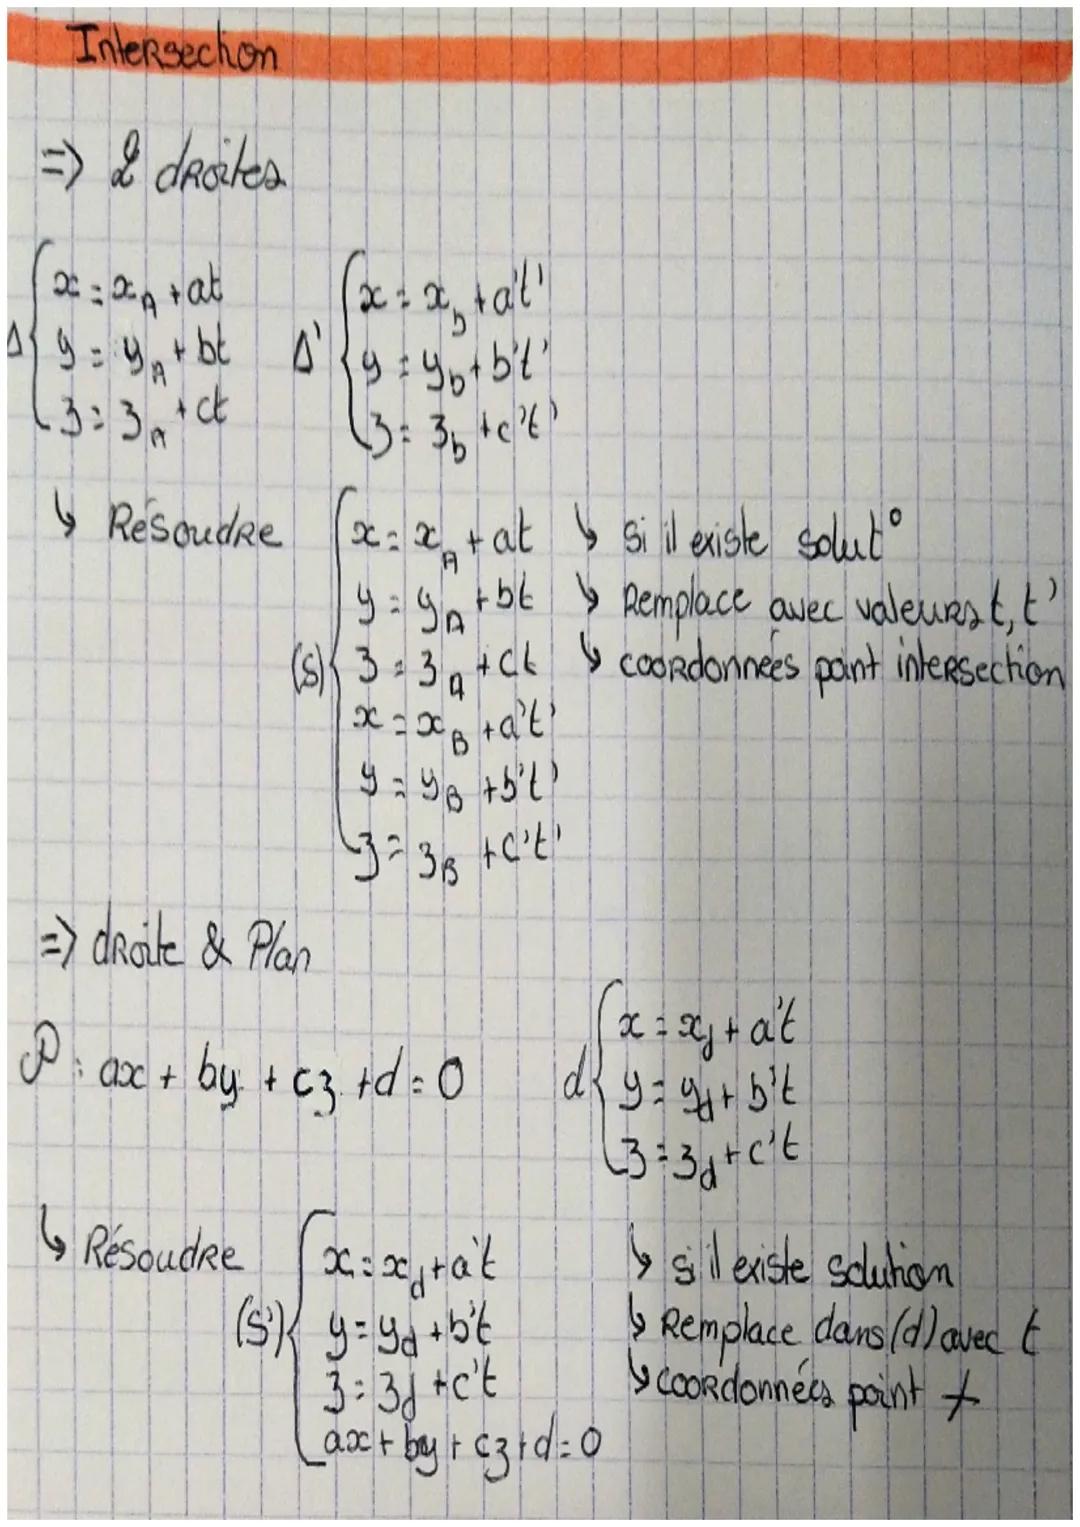 Intersection
=> 2 droites
Δ { x = x_A + at
y = y_A + bt
z = z_A + ct
Δ' { x = x_b + a't'
y = y_b + b't'
z = z_b + c't'
↳ Résoudre
(S) { x = x_A + at
y = y_A + bt
z = z_A + ct
x = x_B + a't'
y = y_B + b't'
z = z_B + c't'
↳ si il existe solut°
↳ Remplace avec valeurs t, t'
↳ coordonnées point intersection
=> droite & Plan
P : ax + by + cz + d = 0
d { x = x_d + a't
y = y_d + b't
z = z_d + c't
↳ Résoudre
(S') { x = x_d + a't
y = y_d + b't
z = z_d + c't
ax + by + cz + d = 0
↳ si il existe solution
↳ Remplace dans (d) avec t
↳ coordonnées point +